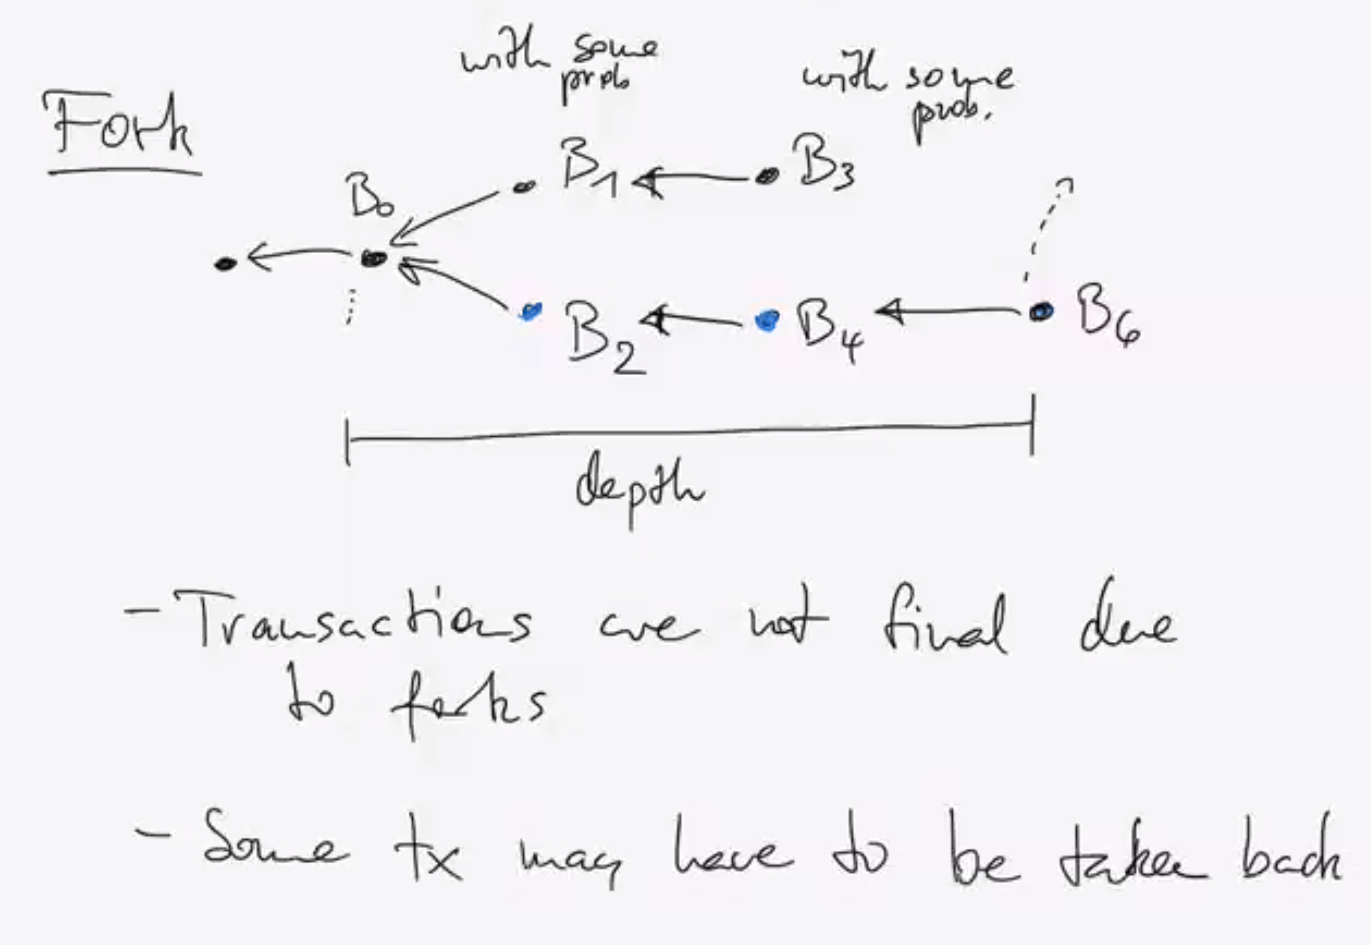 with some
prob
with some
prob.
Fork
B₀
B₁
B₃
B₂
B₄
B₆
depth
- Transactions are not final due
to forks
- Some tx may have to be taken back